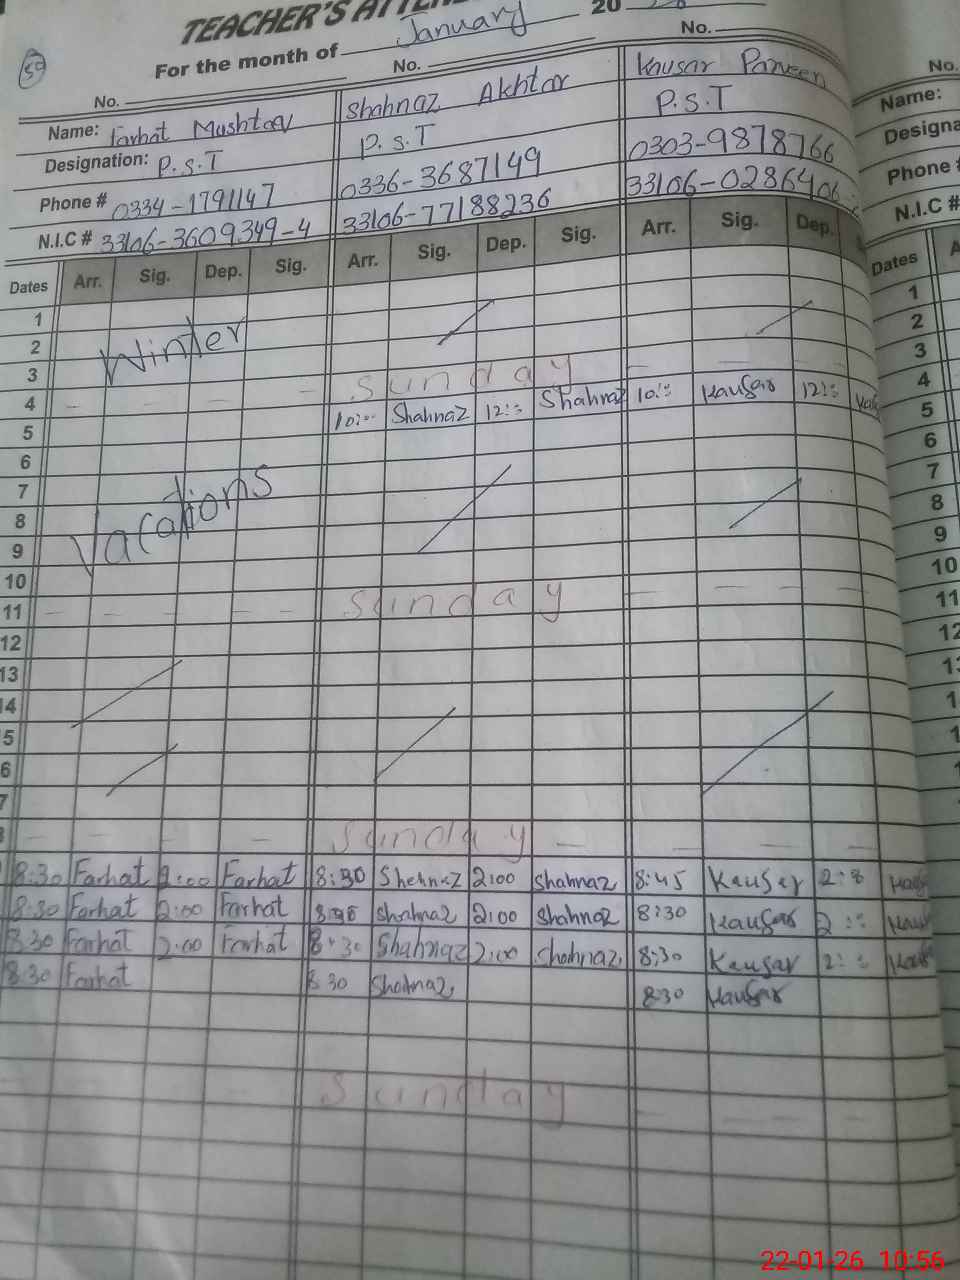 TEACHER'S ATTE
For the month of January 20
50
No. No. No. No.
Name: Farhat Mushtaq Shahnaz Akhtar Kausar Parveen Name:
Designation: P.S.T P.S.T P.S.T Designa
Phone # 0334-1791147 0336-3687149 0303-9878766 Phone #
N.I.C # 33106-3609349-4 33106-77188236 33106-0286406 N.I.C #
Dates Arr. Sig. Dep. Sig. Arr. Sig. Dep. Sig. Arr. Sig. Dep. Dates A
1 1
2 Winter 2
3 3
4 Sunday 4
5 10:-- Shahnaz 12:- Shahnaz 10:- Kausar 12:- 5
6 6
7 7
8 Vacations 8
9 9
10 10
11 Sunday 11
12 12
13 13
4
5
6
7
Sunday
8:30 Farhat 2:00 Farhat 8:30 Shehnaz 2:00 Shahnaz 8:45 Kausar
8:30 Farhat 2:00 Farhat Shahnaz 2:00 Shahnaz 8:30 Kausar
8:30 Farhat 2:00 Farhat 8:30 Shahnaz 2:00 Shahnaz 8:30 Kausar
8:30 Farhat 8:30 Shahnaz 8:30 Kausar
Sunday
22-01-26 10:56